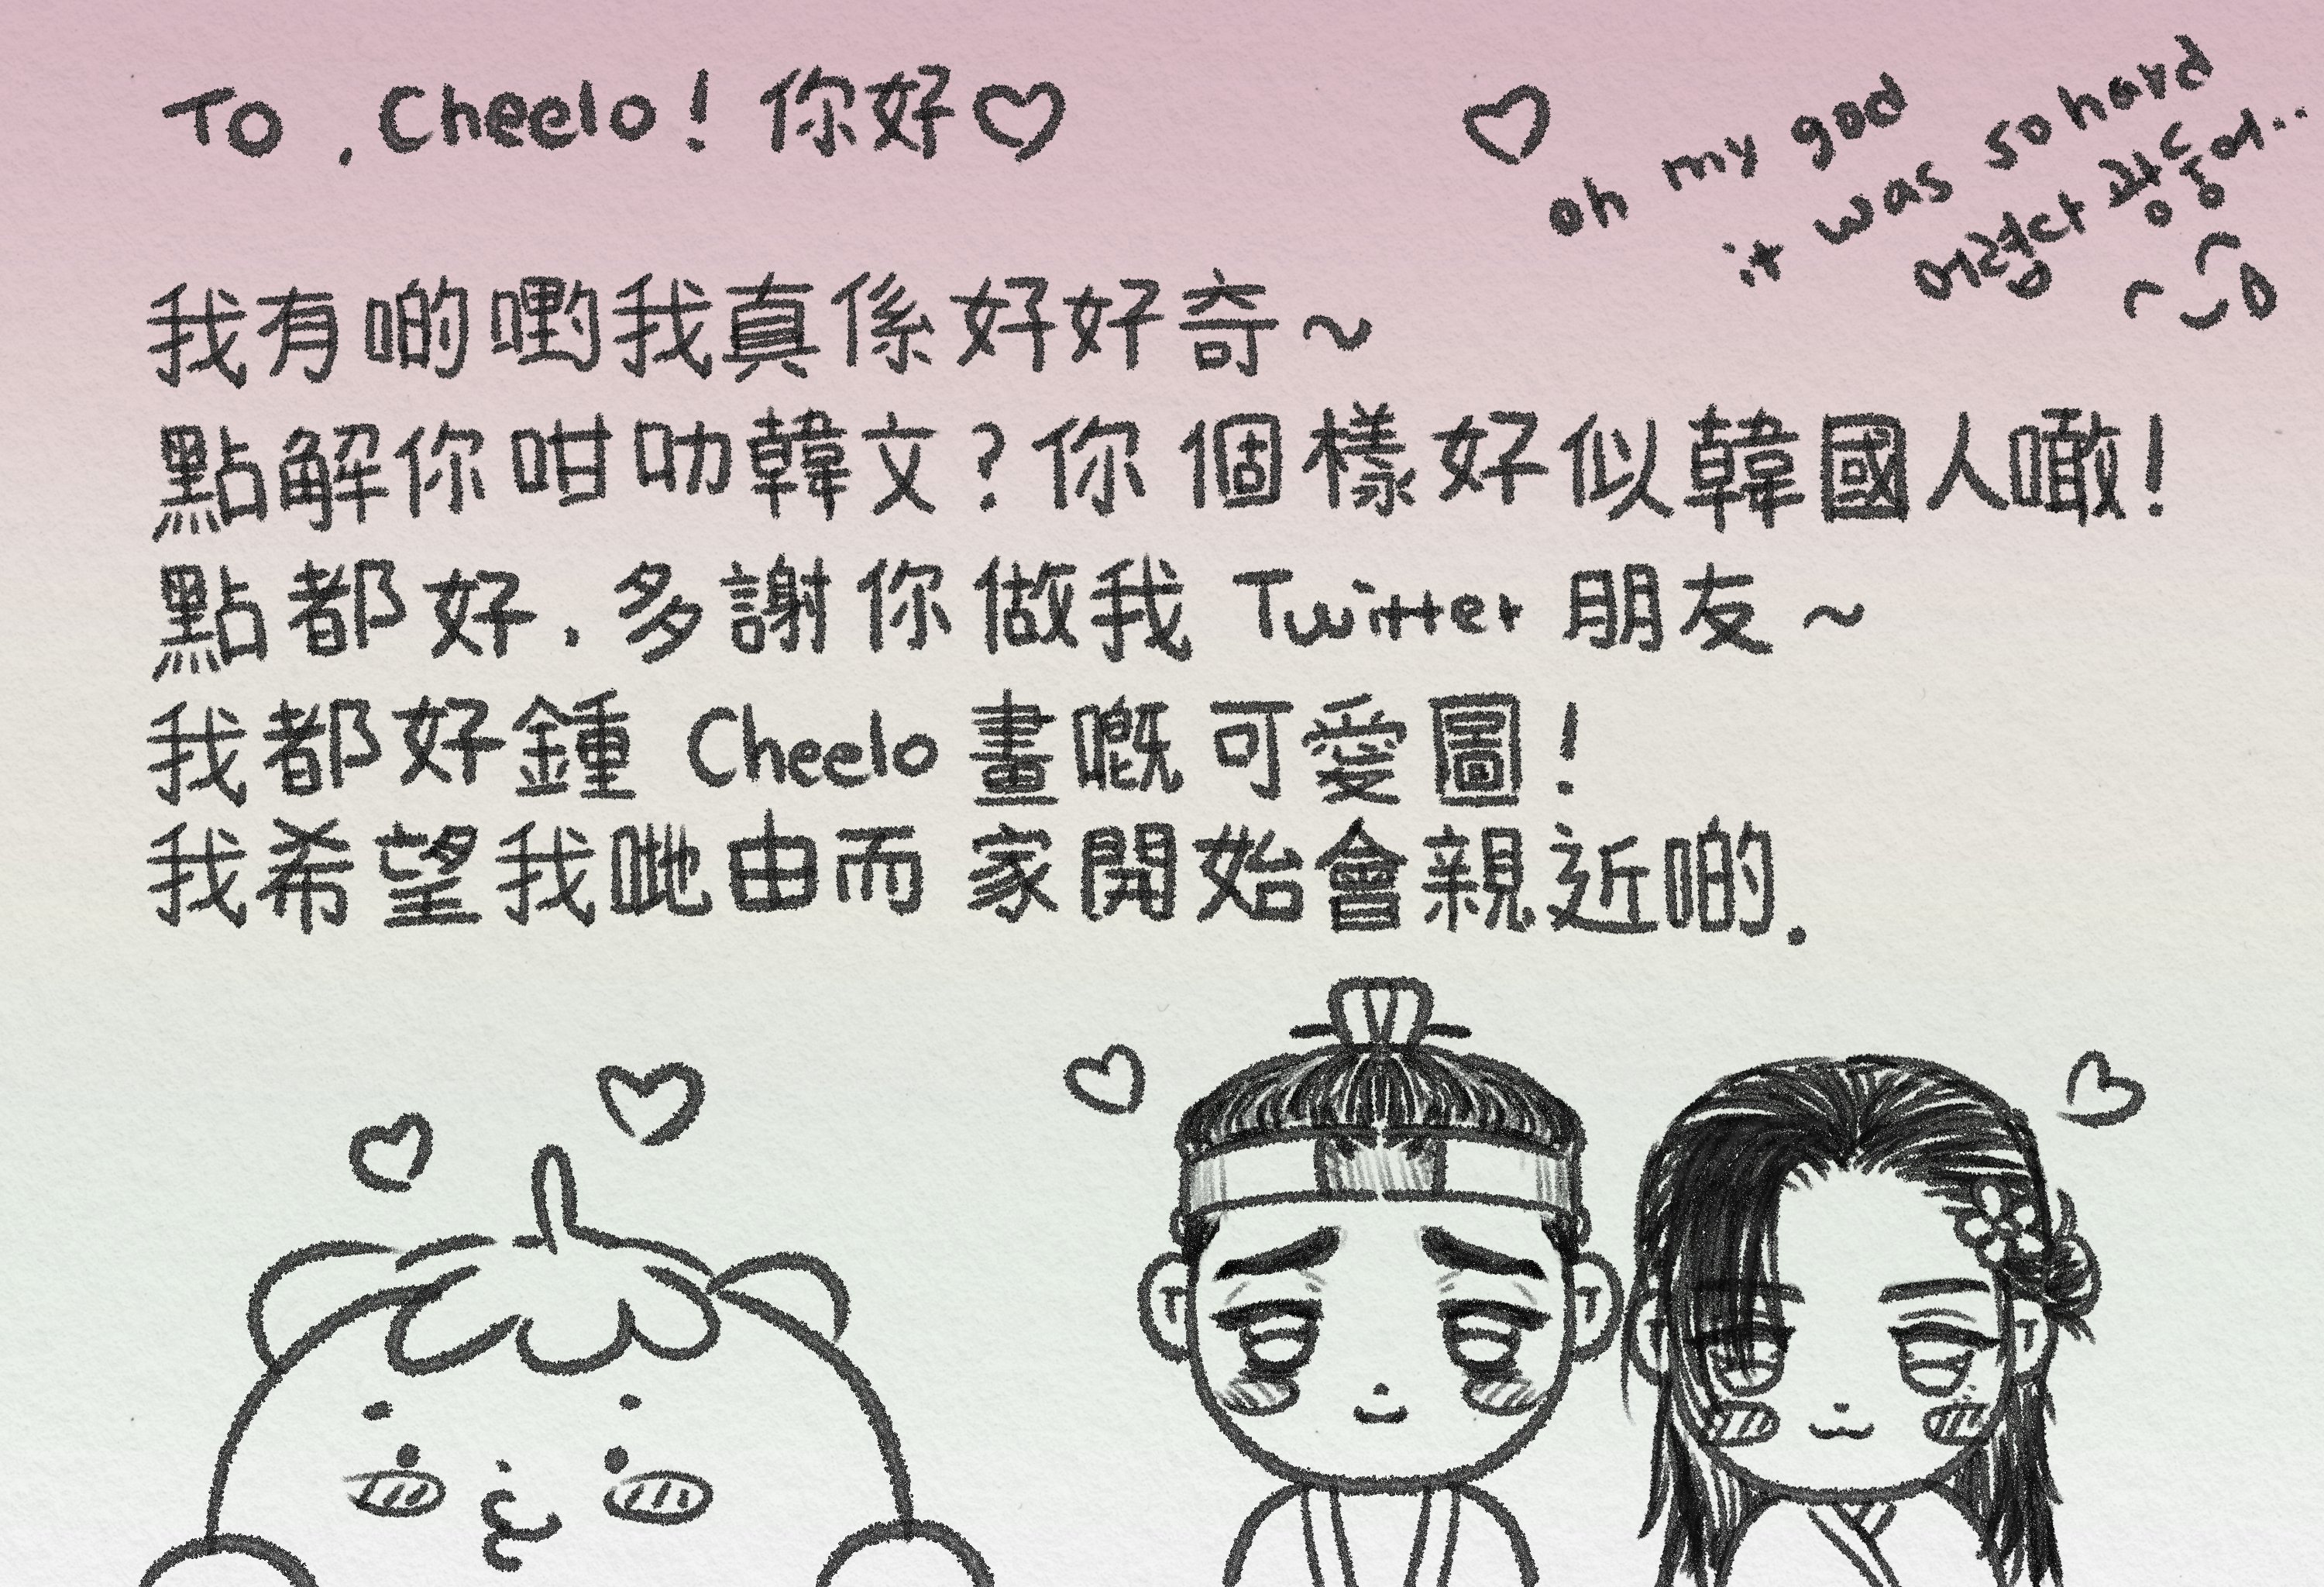 To. Cheelo! 你好♡
♡ oh my god
it was so hard
어렵다 광동어..
我有啲嘢我真係好好奇~
點解你咁叻韓文?你個樣好似韓國人噉!
點都好.多謝你做我 Twitter 朋友~
我都好鍾 Cheelo 畫嘅可愛圖!
我希望我哋由而家開始會親近啲.